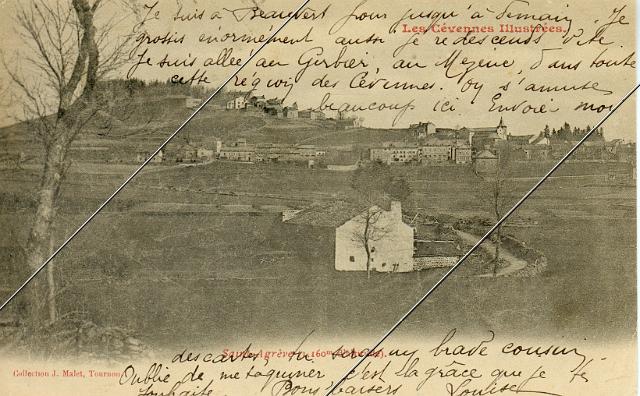 Je suis à Beauvert pour jusqu'à demain. Je
grossis enormement aussi je redescends vite.
Les Cévennes Illustrées.
Je suis allée au Gerbier, au Mezenc dans toute
cette région des Cévennes. On s'amuse
beaucoup ici Envoie moi
des cartes, tu seras my brave cousin
Saint-Agrève
Collection J. Malet, Tournon
Oublie de me taquiner c'est la grace que je te
souhaite. Bons baisers Louise